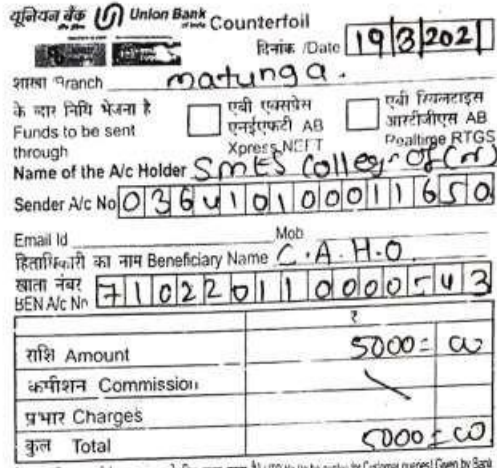 यूनियन बैंक Union Bank Counterfoil
of India
दिनांक /Date 19/3/2021
शाखा Branch matunga.
के द्वार निधि भेजना है
Funds to be sent through
एबी एक्सप्रेस एनईएफटी AB Xpress NEFT
एबी रियलटाइम आरटीजीएस AB Realtime RTGS
Name of the A/c Holder SMES College of (N)
Sender A/c No 036410100011650
Email Id Mob
हिताधिकारी का नाम Beneficiary Name C.A.H.O
खाता नंबर
BEN A/c No 710220110000543
₹
राशि Amount 5000=00
कमीशन Commission
प्रभार Charges
कुल Total 5000=00